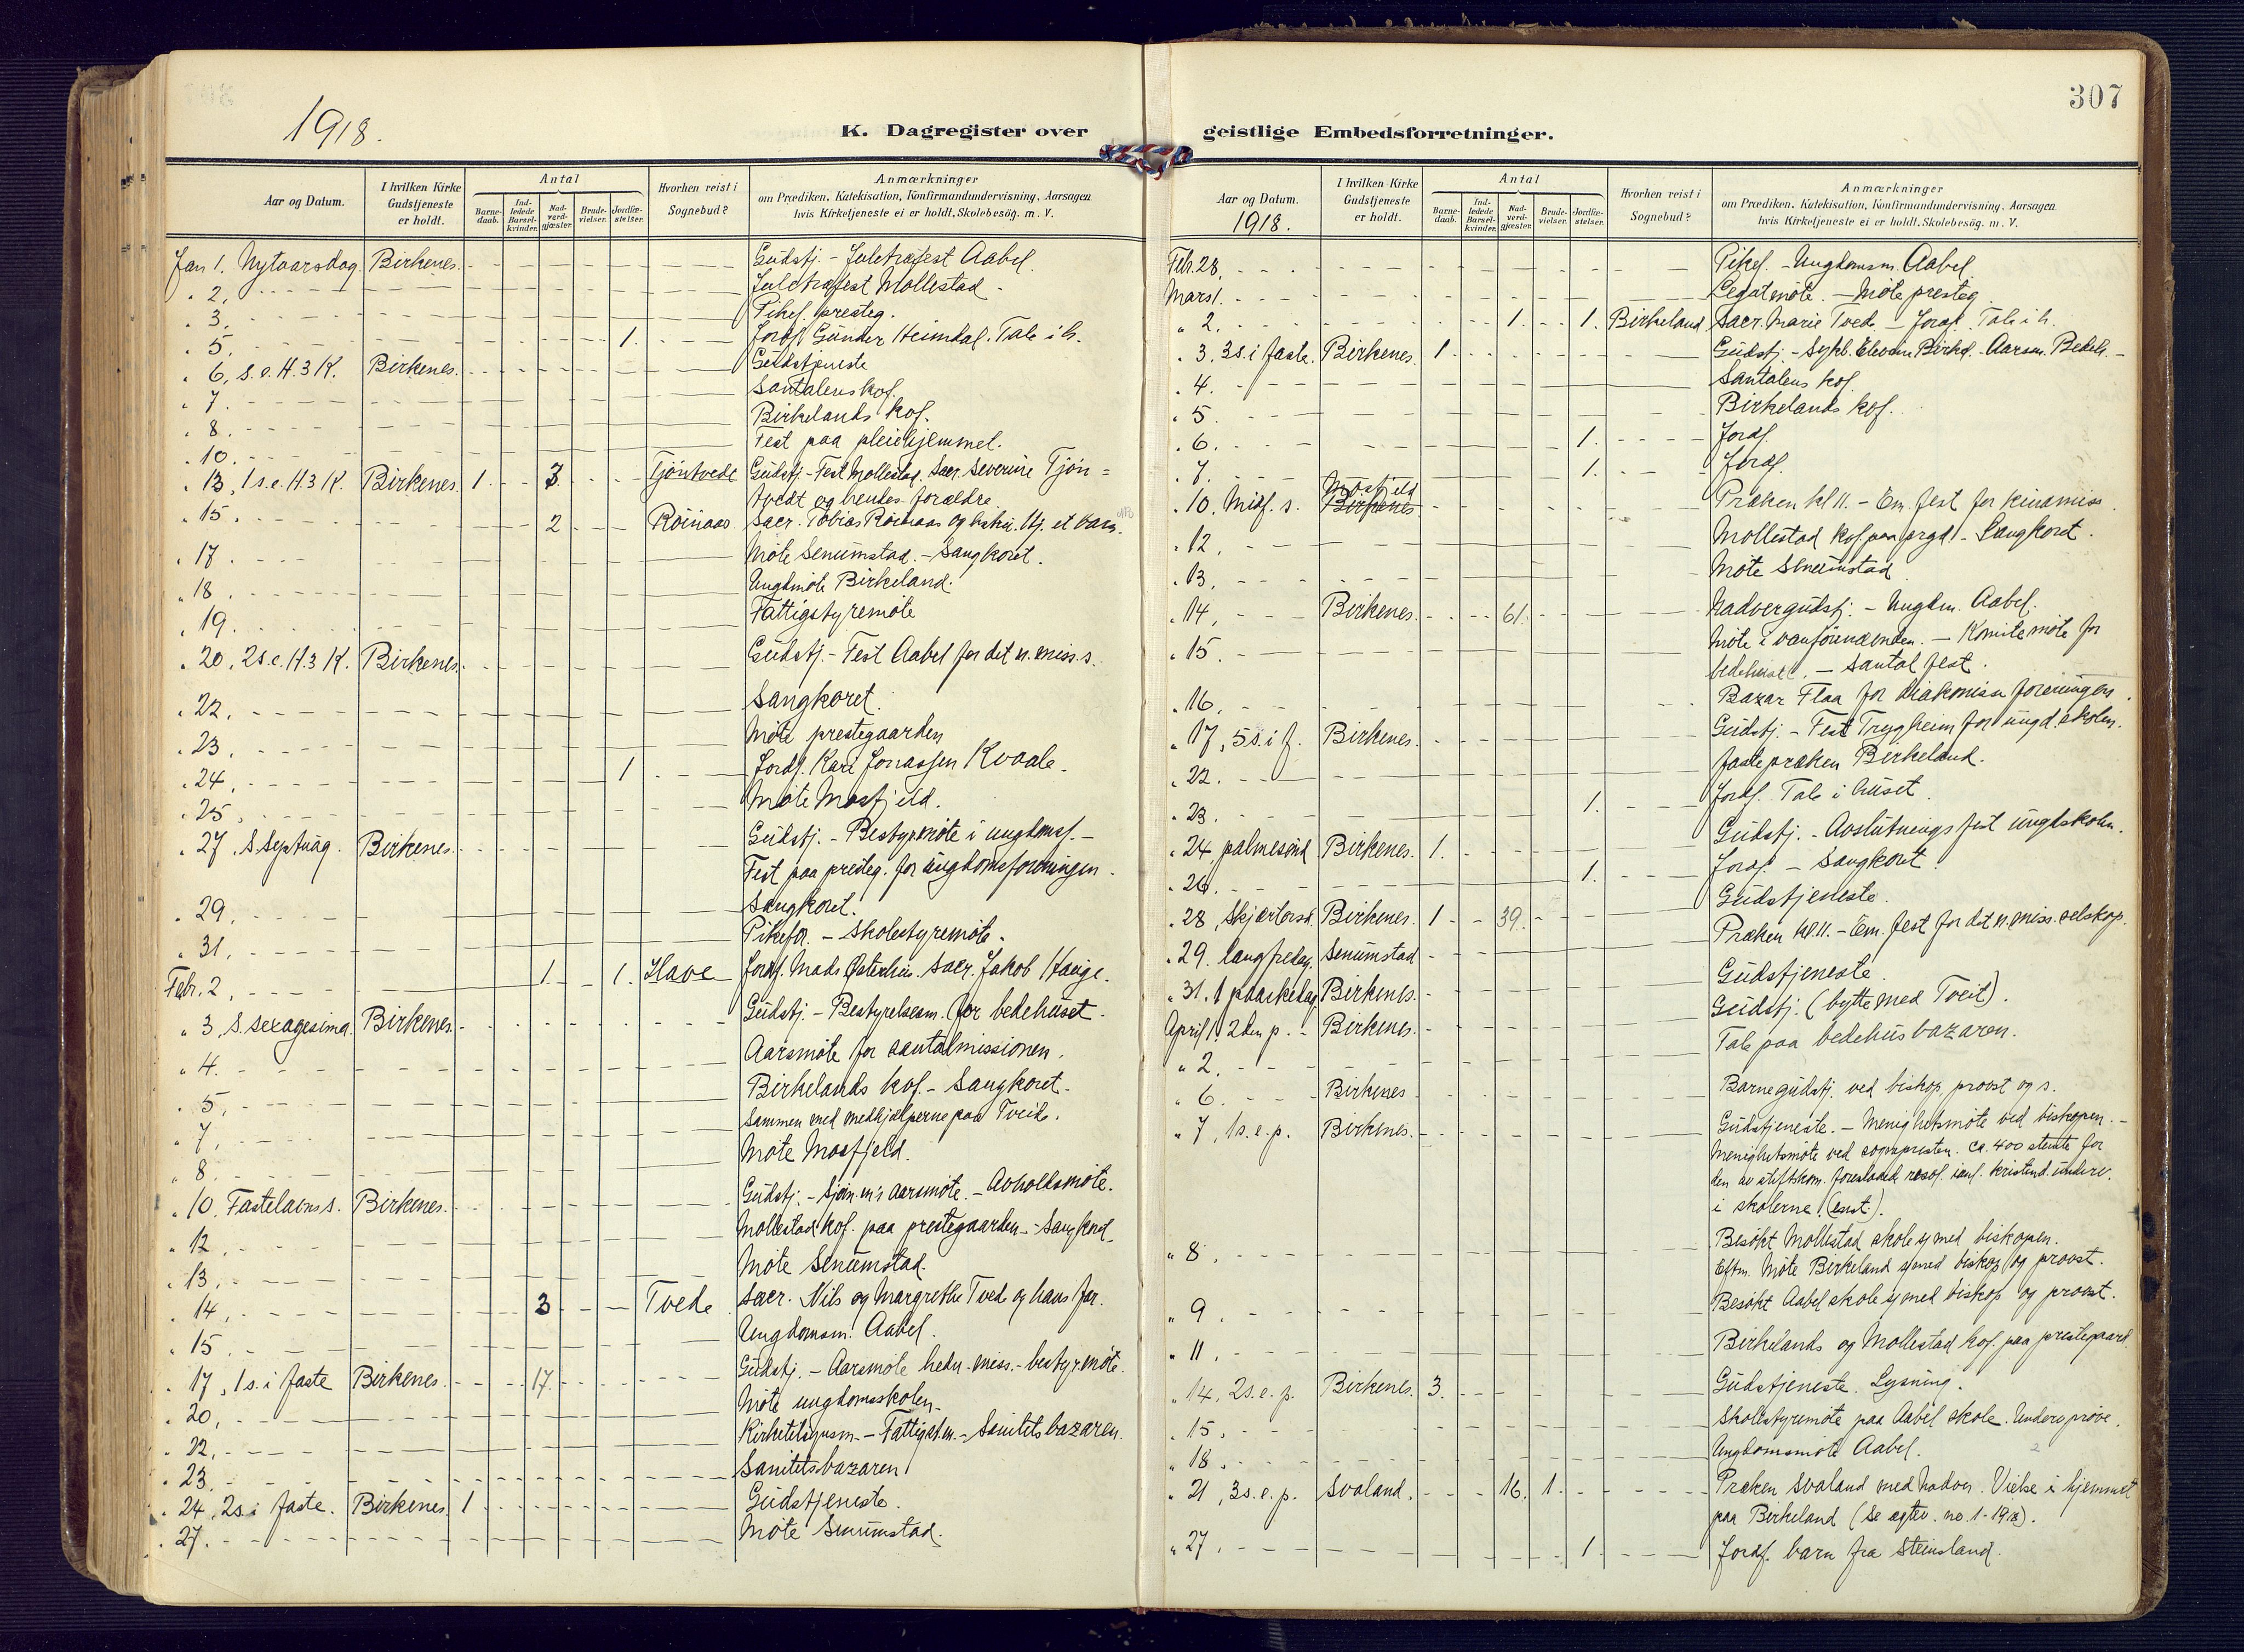 1918.
K. Dagregister over
Aar og Datum.
I hvilken Kirke Gudstjeneste er holdt.
Antal
Barnedaab.
Indledede Barselkvinder.
Nadverdgjæster.
Brudevielser.
Jordfæstelser.
Hvorhen reist i Sognebud?
Anmærkninger
om Prædiken, Katekisation, Konfirmandundervisning, Aarsagen
hvis Kirketjeneste ei er holdt, Skolebesøg. m. V.
Jan 1. Nytaarsdag. Birkenes. Gudstj. - Juletræfest Aabel.
" 2. Juletræfest Mollestad.
" 3. Pikef. presteg.
" 5. 1. Jordf. Gunder Heimdal. Tale i h.
" 6, s.e.H.3 K. Birkenes. Gudstjeneste
" 7. Santalens kof.
" 8. Birkelands kof.
" 10. Fest paa pleiehjemmet.
" 13, 1 s.e.H.3 K. Birkenes. 1. 3. Tjöntvedt Gudstj. - Fest Mollestad. Sacr. Severine Tjön=
tvedt og hendes forældre
" 15. 2 Röinaas Sacr. Tobias Röinaas og hustru. Hj. et barn.
" 17. Möte Senumstad. - Sangkoret.
" 18. Ungdmöte Birkeland.
" 19. Fattigstyremöte
" 20, 2 s.e.H.3 K. Birkenes. Gudstj. - Fest Aabel for det n. miss. s.
" 22. Sangkoret.
" 23. Möte prestegaarden
" 24. 1 Jordf. Kari Jonassen Kvaale.
" 25. Möte Mosfjeld.
" 27. S. Septuag. Birkenes. Gudstj. - Bestyrmöte i ungdomsf. -
Fest paa presteg. for ungdomsforeningen.
" 29. Sangkoret.
" 31. Pikefor. - Skolestyremöte.
Febr. 2. 1. 1. Have Jordf. Mads Østerhus. Sacr. Jakob Hauge.
" 3. S. Sexagesima. Birkenes. Gudstj. - Bestyrelsesm. for bedehuset.
" 4. Aarsmöte for santalmissionen.
" 5. Birkelands kof. - Sangkoret.
" 7. Sammen med medhjælperne paa Tveide.
" 8. Möte Mosfjeld.
" 10. Fastelavns s. Birkenes. Gudstj. - Sjöm. m's aarsmöte. - Avholdsmöte.
" 12. Mollestad kof. paa prestegaarden. - Sangkoret.
" 13. Möte Senumstad.
" 14. 3 Tvede Sacr. Nils og Margrethe Tvede og hans far.
" 15. Ungdomsm. Aabel.
" 17, 1 s. i faste Birkenes. 17. Gudstj. - Aarsmöte hedn. miss. - bestyr.möte.
" 20. Möte ungdomsskolen.
" 22. Kirketilsynsm. - Fattigst.m. - Sanitetsbazaren.
" 23. Sanitetsbazaren
" 24, 2 s. i faste. Birkenes 1 Gudstjeneste.
" 27. Möte Senumstad.
307
geistlige Embedsforretninger.
Aar og Datum. 1918.
I hvilken Kirke Gudstjeneste er holdt.
Antal
Barnedaab.
Indledede Barselkvinder.
Nadverdgjæster.
Brudevielser.
Jordfæstelser.
Hvorhen reist i Sognebud?
Anmærkninger
om Prædiken, Katekisation, Konfirmandundervisning, Aarsagen
hvis Kirketjeneste ei er holdt, Skolebesøg. m. V.
Febr. 28. Pikef. - Ungdomsm. Aabel
Mars 1. Legatmöte. - Möte presteg.
" 2. 1. 1. Birkeland Sacr. Marie Tvede - Jordf. Tale i h.
" 3, 3 s. i faste. Birkenes. 1. Gudstj. - Aarsm. Bedeh. -
" 4. Santalens kof.
" 5. Birkelands kof.
" 6. 1. Jordf.
" 7. 1. Jordf.
" 10. Midf. s. Birkenes Mosfjeld Præken kl 11. - Em. fest for kinamiss.
" 12. Mollestad kof. paa prgd. - Sangkoret.
" 13. Möte Senumstad
" 14. Birkenes. 61. Nadvergudstj. - Ungdm. Aabel.
" 15. Möte i vanförenævnden. - Komitemöte for
bedehuset. - Santalfest.
" 16. Bazar Flaa for diakonisseforeningen.
" 17, 5 s. i f. Birkenes. Gudstj. - Fest Trygheim for ungd.skolen.
" 22. Fastepræken Birkeland.
" 23. 1. Jordf. Tale i huset.
" 24. palmesönd. Birkenes. 1. Gudstj. - Avslutningsfest ungdskolen.
" 26. 1. Jordf. - Sangkoret.
" 28, Skjærtorsd. Birkenes. 1 39. Gudstjeneste.
" 29. langfredag. Senumstad Præken kl. 11. - Em. fest for det n. miss. selskap.
" 31. 1 paaskedag Birkenes. Gudstjeneste.
April 1. 2den p. Birkenes. Gudstj. (bytte med Tveit).
" 2. Tale paa bedehusbazaren.
" 6. Birkenes Barnegudstj. ved biskop, provst og s.
" 7, 1 s.e.p. Birkenes. Gudstjeneste. - Menighetsmöte ved biskopen. -
Menighetsmöte ved sognepresten. ca. 400 stemte for
den av stiftskom. foreslaaede resol. kristend. underv.
i skolerne! (enst.).
" 8. Besökt Mollestad skole sj med biskopen.
Eftm. Möte Birkeland sj med biskop og provst.
" 9. Besökt Aabel skole sj med biskop og provst.
" 11. Birkelands og Mollestad kof. paa prestegaard.
" 14, 2 s.e.p. Birkenes. 3. Gudstjeneste. Lysning.
" 15. Skolestyremöte paa Aabel skole. Underv. pröve.
" 18. Ungdomsmöte Aabel.
" 21, 3 s.e.p. Svaland. 16. 1. Præken Svaland med Nadver. Vielse i hjemmet
paa Birkeland (Se egtev. no. 1 - 1918).
" 27. 1. Jordf. barn fra Steinsland.